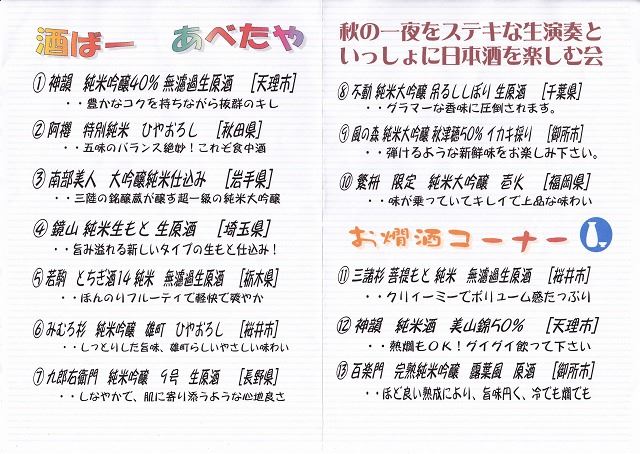 酒ばー　あべたや
①神韻　純米吟醸40%　無濾過生原酒　[天理市]
・・豊かなコクを持ちながら抜群のキレ
②阿櫻　特別純米　ひやおろし　[秋田県]
・・五味のバランス絶妙！これぞ食中酒
③南部美人　大吟醸純米仕込み　[岩手県]
・・三陸の銘醸蔵が醸す超一級の純米大吟醸
④鏡山 純米生もと 生原酒　[埼玉県]
・・旨み溢れる新しいタイプの生もと仕込み！
⑤若駒　とちぎ酒14 純米　無濾過生原酒　[栃木県]
・・ほんのりフルーティで軽快で爽やか
⑥みむろ杉　純米吟醸　雄町　ひやおろし　[桜井市]
・・しっとりした旨味、雄町らしいやさしい味わい
⑦九郎右衛門　純米吟醸　9号　生原酒　[長野県]
・・しなやかで、肌に寄り添うような心地良さ
秋の一夜をステキな生演奏と
いっしょに日本酒を楽しむ会
⑧不動 純米大吟醸 吊るししぼり 生原酒　[千葉県]
・・グラマーな香味に圧倒されます。
⑨風の森 純米大吟醸 秋津穂50% イカキ採り　[御所市]
・・弾けるような新鮮味をお楽しみ下さい。
⑩繁枡　限定　純米大吟醸　壱火　[福岡県]
・・味が乗っていてキレイで上品な味わい
お燗酒コーナー
⑪三諸杉 菩提もと 純米　無濾過生原酒　[桜井市]
・・クリィーミーでボリューム感たっぷり
⑫神韻　純米酒　美山錦50%　[天理市]
・・熱燗もOK！グイグイ飲って下さい
⑬百楽門　完熟純米吟醸　露葉風　原酒　[御所市]
・・ほど良い熟成により、旨味円く、冷でも燗でも